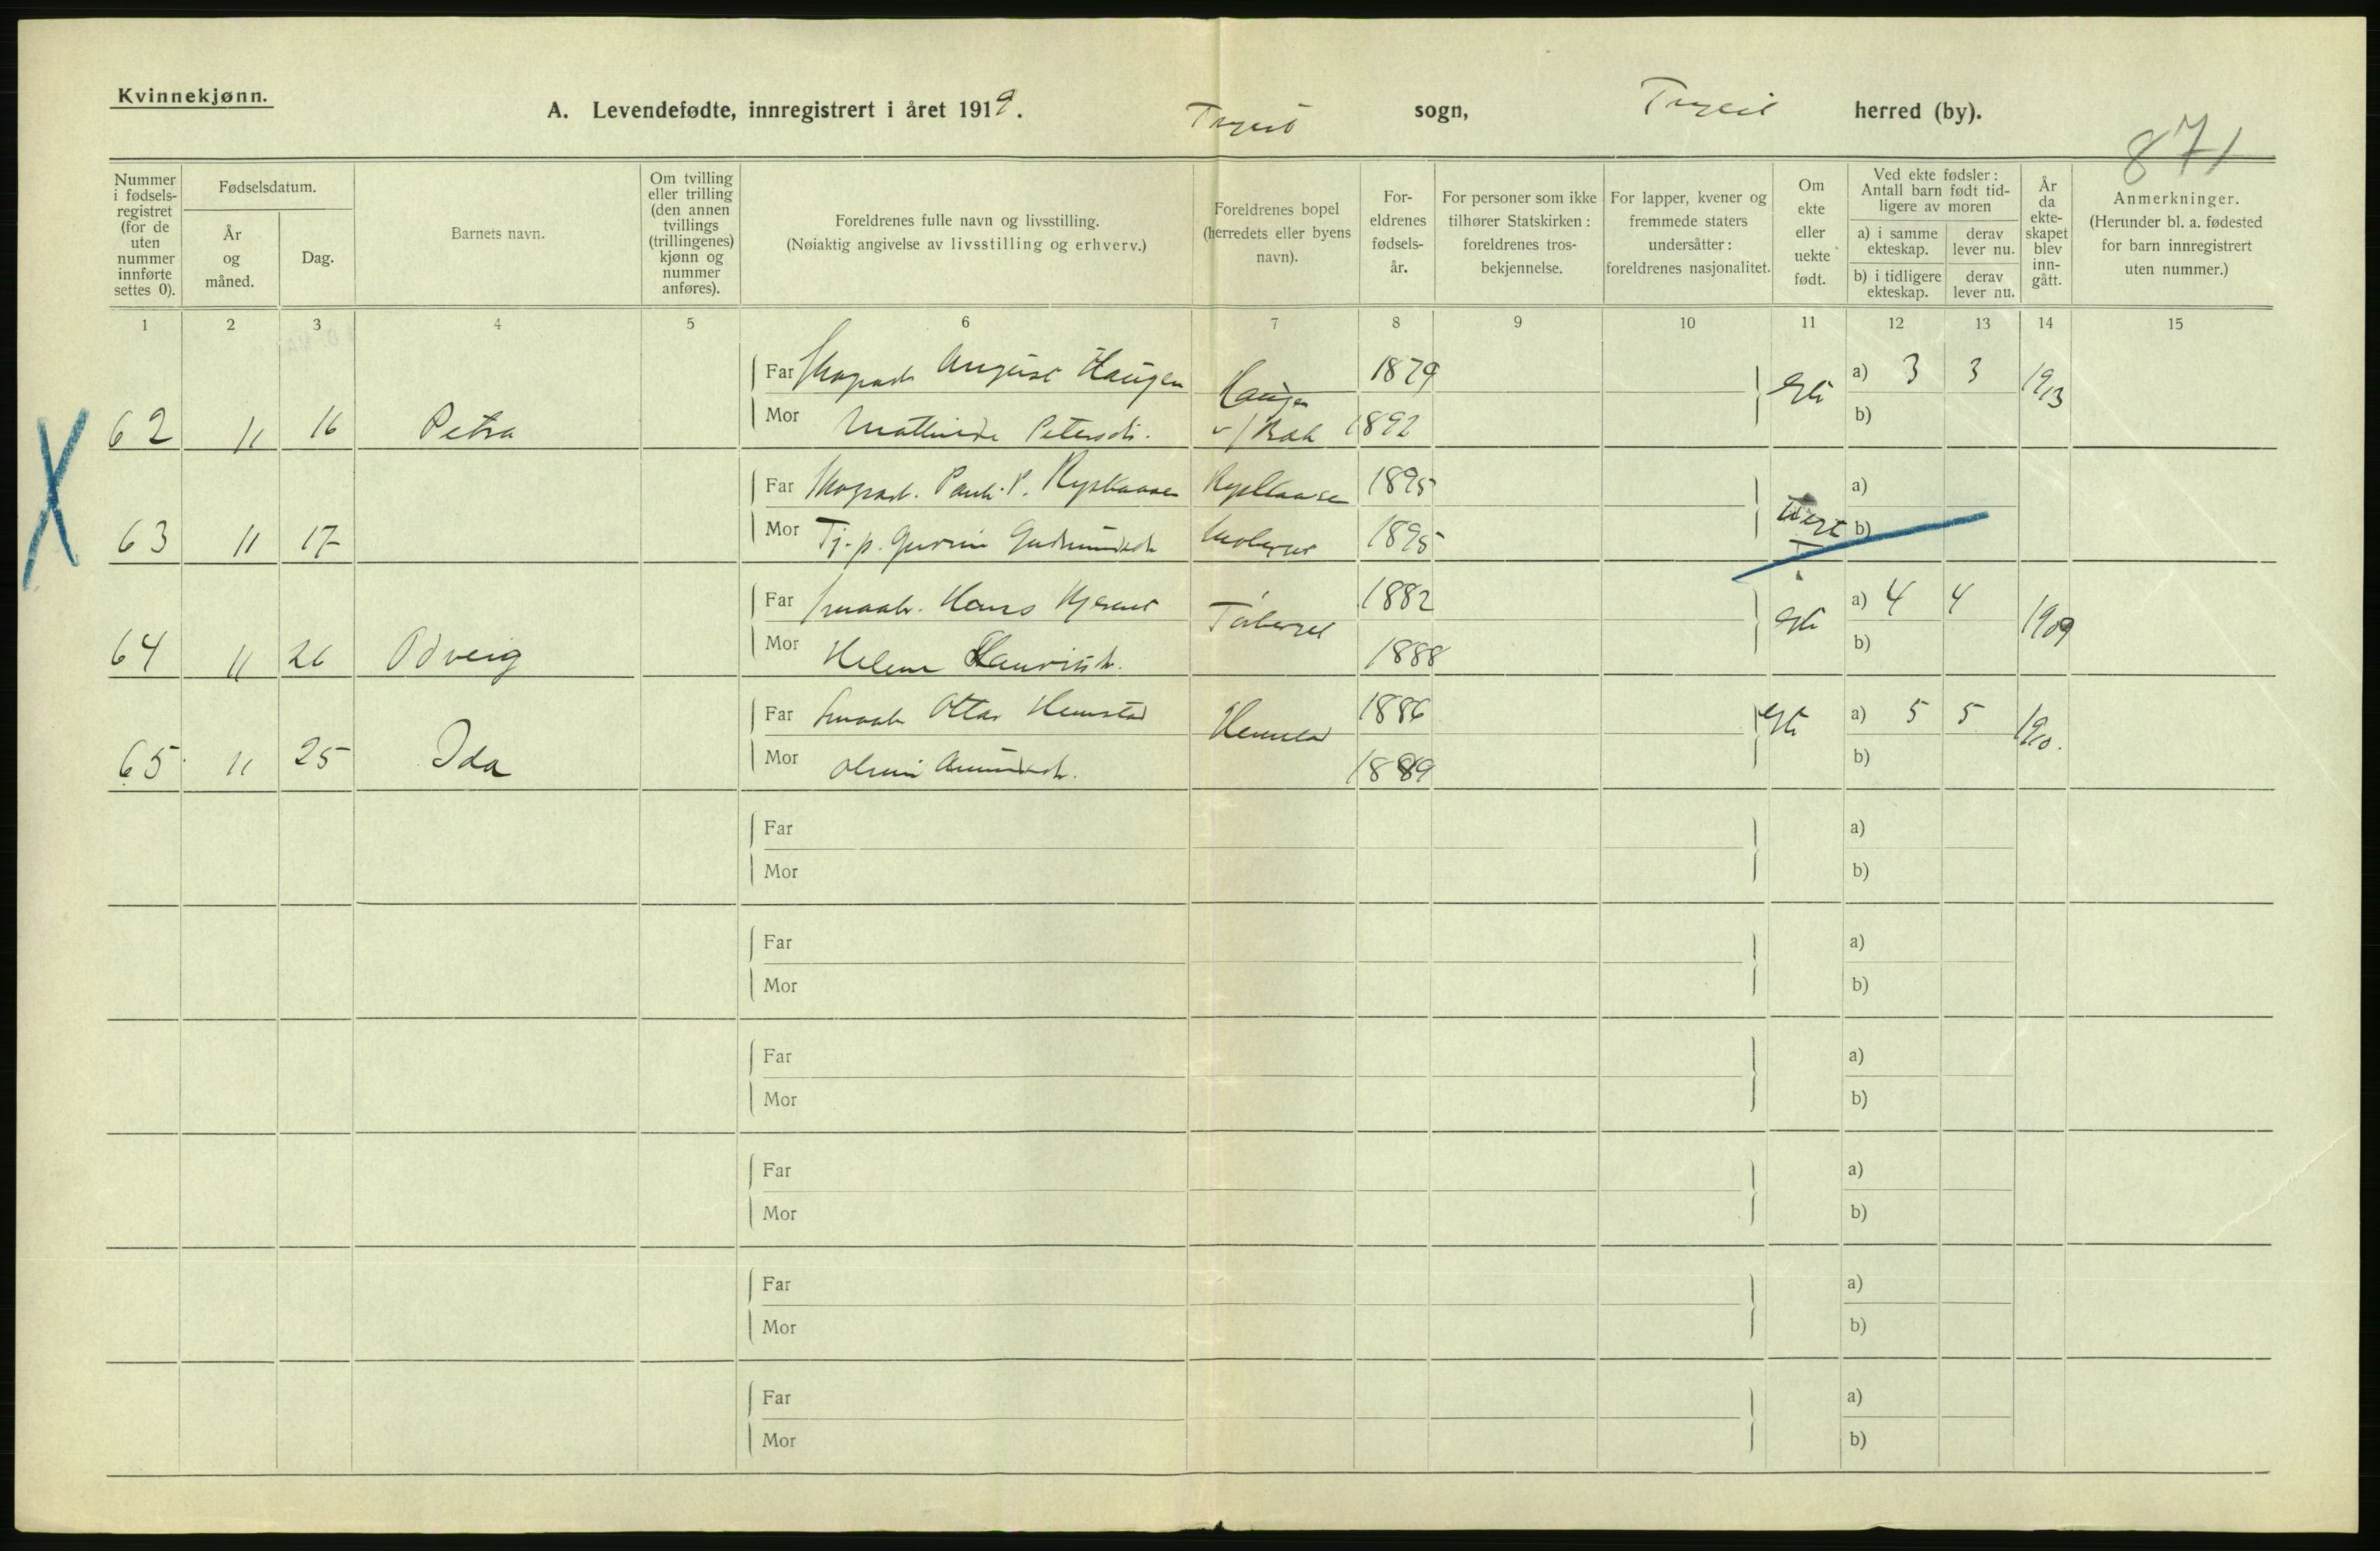 Kvinnekjønn.
A. Levendefødte, innregistrert i året 1919. Trysil sogn, Trysil herred (by).
871
Nummer i fødsels-registret (for de uten nummer innførte settes 0).
Fødselsdatum.
År og måned.
Dag.
Barnets navn.
Om tvilling eller trilling (den annen tvillings (trillingenes) kjønn og nummer anføres).
Foreldrenes fulle navn og livsstilling.
(Nøiaktig angivelse av livsstilling og erhverv.)
Foreldrenes bopel (herredets eller byens navn).
For-eldrenes fødsels-år.
For personer som ikke tilhører Statskirken: foreldrenes tros-bekjennelse.
For lapper, kvener og fremmede staters undersåtter: foreldrenes nasjonalitet.
Om ekte eller uekte født.
Ved ekte fødsler: Antall barn født tid-ligere av moren
a) i samme ekteskap.
derav lever nu.
b) i tidligere ekteskap.
derav lever nu.
År da ekte-skapet blev inn-gått.
Anmerkninger.
(Herunder bl. a. fødested for barn innregistrert uten nummer.)
1 2 3 4 5 6 7 8 9 10 11 12 13 14 15
Far August Haugen Haugen 1879 a) 3 3 1913
62 11 16 Petra Mor Mathilde Petersdt. v/ Bak 1892 Egte b)
X
Far Paul P. Rysåaasen 1895 a)
63 11 17 Mor Tj.p. 1895 Uegt b)
Far Smaabr. Hans Torberget 1882 a) 4 4 1909
64 11 26 Odveig Mor Helene 1888 Egte b)
Far Smaabr Ottar Hemstad Hemstad 1886 Egte a) 5 5 1910.
65 11 25 Ida Mor 1889 b)
Far a)
Mor b)
Far a)
Mor b)
Far a)
Mor b)
Far a)
Mor b)
Far a)
Mor b)
Far a)
Mor b)